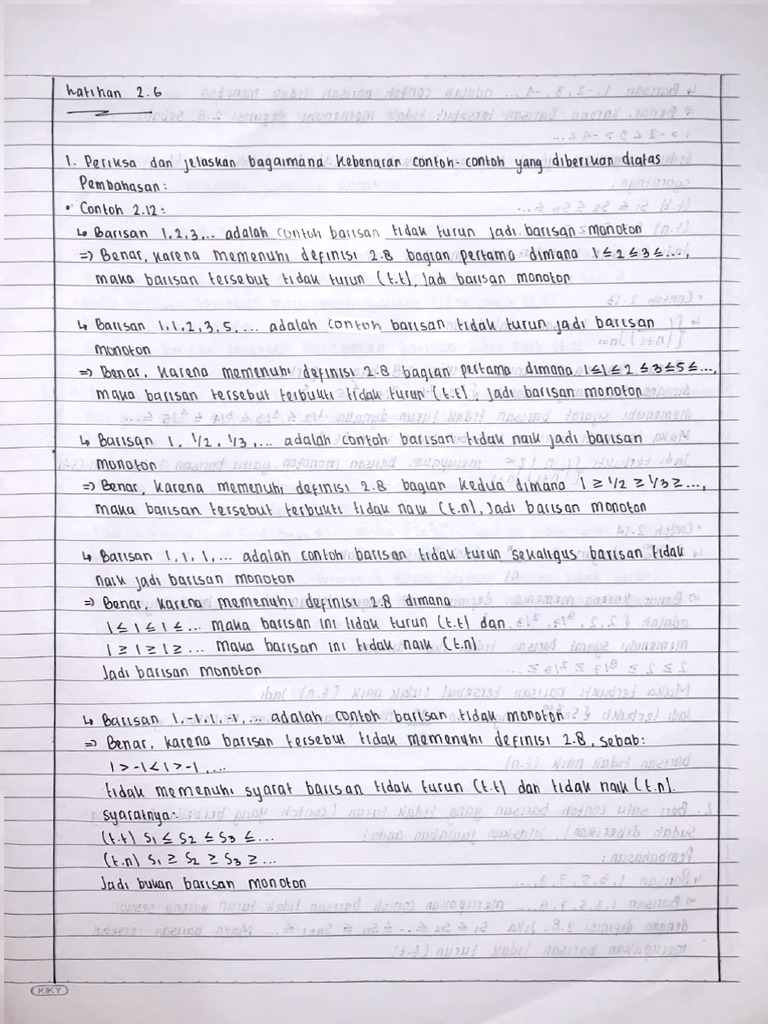 Latihan 2.6
1. Periksa dan jelaskan bagaimana kebenaran contoh-contoh yang diberikan diatas
Pembahasan:
• Contoh 2.12:
↳ Barisan 1,2,3,... adalah contoh barisan tidak turun jadi barisan monoton
⇒ Benar, karena memenuhi definisi 2.8 bagian pertama dimana 1≤2≤3≤...,
maka barisan tersebut tidak turun (t.t), Jadi barisan monoton
↳ Barisan 1,1,2,3,5,... adalah contoh barisan tidak turun jadi barisan
monoton
⇒ Benar, karena memenuhi definisi 2.8 bagian pertama dimana 1≤1≤2≤3≤5≤...,
maka barisan tersebut terbukti tidak turun (t.t), jadi barisan monoton
↳ Barisan 1, 1/2, 1/3,... adalah contoh barisan tidak naik jadi barisan
monoton
⇒ Benar, karena memenuhi definisi 2.8 bagian kedua dimana 1≥1/2≥1/3≥...,
maka barisan tersebut terbukti tidak naik (t.n), Jadi barisan monoton
↳ Barisan 1,1,1,... adalah contoh barisan tidak turun sekaligus barisan tidak
naik jadi barisan monoton
⇒ Benar, karena memenuhi definisi 2.8 dimana
1≤1≤1≤... maka barisan ini tidak turun (t.t) dan
1≥1≥1≥... maka barisan ini tidak naik (t.n)
Jadi barisan monoton
↳ Barisan 1,-1,1,-1,... adalah contoh barisan tidak monoton
⇒ Benar, karena barisan tersebut tidak memenuhi definisi 2.8, sebab:
1>-1<1>-1,...
tidak memenuhi syarat barisan tidak turun (t.t) dan tidak naik (t.n).
syaratnya:
(t.t) S1 ≤ S2 ≤ S3 ≤...
(t.n) S1 ≥ S2 ≥ S3 ≥...
Jadi bukan barisan monoton
KIKY